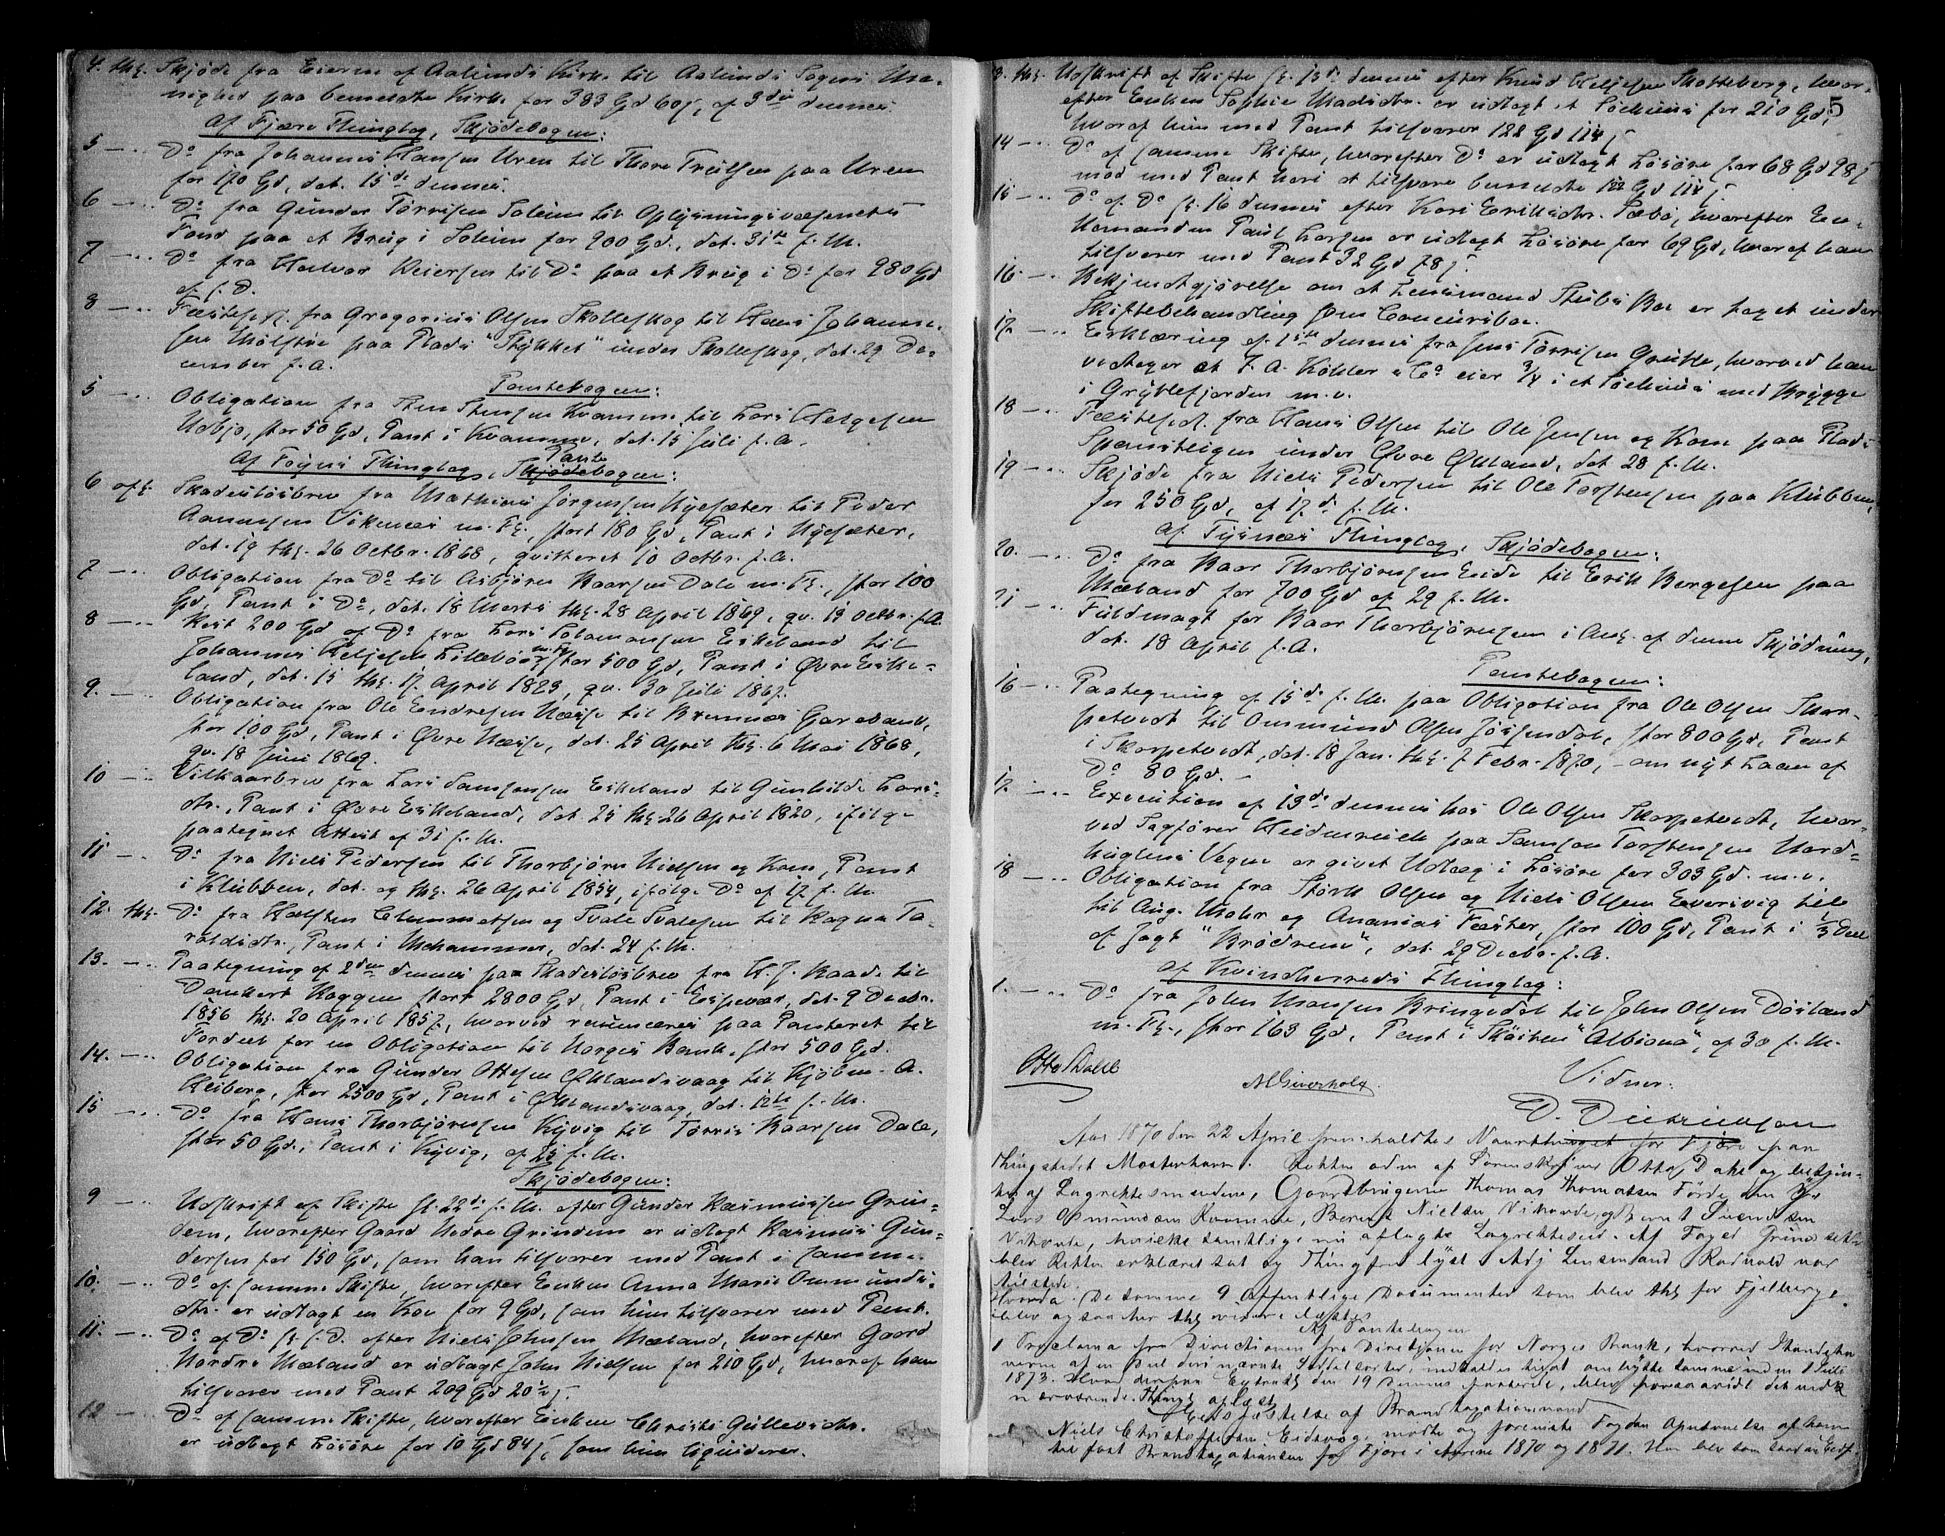 4. thl. Skjøde fra Eieren af Aalunds Kirke til Aalunds Sogns Me-
nighed paa bemeldte Kirke for 383 Gd 60 f, af 3die dennes
Af Fjære Thinglag, Skjødebogen:
5 — .. Do fra Johannes Hansen Uren til Thore Trulsen paa Uren
for 170 Gd, dat. 15de dennes.
6 — .. Do fra Gunder Tørrisen Soleim til Oplysningsvæsenets
Fond paa et Brug i Soleim for 900 Gd., dat. 31te f. M.
7 — .. Do fra Halvor Reiersen til Do paa et Brug i Do for 980 Gd
af s. D.
8 — .. Fæsteseddl. fra Gregorius Olsen Skolleskog til Hans Johanne-
sen paa Plads "Stykket" under Skolleskog, dat. 29 De-
cember f. A.
Pantebogen:
5 — .. Obligation fra Sten Stensen Kvamme til Lars Helgesen
Udbjo, stor 50 Gd, Pant i Kvamme, dat. 15 Juli f. A.
Af Føyns Thinglag, Skjødebogen: Pante
6 afl. Skadesløsbrev fra Mathias Jørgensen Nysæter til Peder
Aamusen Viknes m. Fl., stort 180 Gd, Pant i Nysæter,
dat. 19 thl. 26 Octbr. 1868, qvitteret 10 Octbr. f. A.
7 — .. Obligation fra Do til Asbjørn Baarsen Dale m. Fl., stor 100
Gd, Pant i Do, dat. 18 Marts thl. 28 April 1869, qv. 19 Octbr. f. A.
8 — .. Rest 200 Gd af Do fra Lars Salamonsen Eskeland til
Johannes Helgesen Lillebø stor 500 Gd, Pant i Øvre Eske-
land, dat. 15 thl. 17 April 1823, qv. 30 Juli 1867.
9. — .. Obligation fra Ole Endresen Næsse til Brennes Gareland,
stor 100 Gd, Pant i Øvre Næsse, dat. 25 April thl. 6 Mai 1868,
qv. 18 Juni 1869.
10 — .. Vilkaarbrev fra Lars Samsonsen Eskeland til Gunhilde Lars-
dtr., Pant i Øvre Eskeland, dat. 25 thl. 26 April 1820, ifølge
paategnet Attest af 31 f. M.
11 — .. Do fra Niels Pedersen til Thorbjørn Nielsen og Kone, Pant
i Klubben, dat. og thl. 26 April 1854, ifølge Do af 17 f. M.
12. thl. Do fra Halsten Clemmetsen og Svale Svalesen til Ragna Ta-
raldsdtr., Pant i Mehammer, dat. 24 f. M.
13. — .. Paategning af 2den dennes paa Skadesløsbrev fra H. J. Raade til
Dankert Kaggen stort 2800 Gd, Pant i Espevær, dat. 9 Decbr.
1856 thl. 20 April 1857, hvorved renunceres paa Panteret til
Fordeel for en Obligation til Norges Bank, stor 500 Gd.
14. — .. Obligation fra Gunder Ottesen Øklandsvaag til Kjøbm. A.
Heiberg, stor 2500 Gd, Pant i Øklandsvaag, dat. 12te f. M.
15 — .. Do fra Hans Thorbjørnsen Kyvig til Tørris Baarsen Dale,
stor 50 Gd., Pant i Kyvig, af 25 f. M.
Skjødebogen:
9 — .. Udskrift af Skifte sl. 22de f. M. efter Gunder Rasmussen Grin-
dem, hvorefter Gaard Nedre Grindem er udlagt Rasmus Gun-
dersen for 150 Gd, som han tilsvarer med Pant i samme.
10. — .. Do af samme Skifte, hvorefter Enken Anna Marie Ommunds-
dtr. er udlagt en Kov for 9 Gd, som hun tilsvarer med Pant.
11. — .. Do af Do sl. s. D. efter Niels Johnsen Mæland, hvorefter Gaard
Nordre Mæland er udlagt John Nielsen for 210 Gd, hvoraf han
tilsvarer med Pant 209 Gd 20½ f.
12 — .. Do af samme Skifte, hvorefter Enken Christi Gullevsdtr.
er udlagt Løsøre for 10 Gd 84 f, som hun liqviderer.
5
3. thl. Udskrift af Skifte sl. 15de dennes efter Knud Heljesen Skotteberg, hvor-
efter Enken Sophie Madsdtr. er udlagt et Søehuus for 210 Gd,
hvoraf hun med Pant tilsvarer 122 Gd 114 f
14 — .. Do af samme Skifte, hvorefter Do er udlagt Løsøre for 68 Gd 98 f
mod med Pant heri at tilsvare bemeldte 122 Gd 114 f
15 — .. Do af Do sl. 16 dennes efter Kari Eriksdtr. Sæbø, hvorefter En-
kemanden Paul Larsen er udlagt Løsøre for 69 Gd, hvoraf han
tilsvarer med Pant 32 Gd 78 f.
16. — .. Bekjendtgjørelse om at Lensmand Stubs Bo er taget under
Skiftebehandling som Concursbo.
17. — .. Erklæring af 1ste dennes fra Jens Tørrisen Grutle, hvorved han
vedtager at J. A. Køhler & Co eier 3/4 i et Søehuus med Brygge
i Grutlefjorden m. v.
18 — .. Fæstesedl. fra Hans Olsen til Ole Jensen og Kone paa Plads
Spansteigen under Øvre Økland, dat. 28 f. M.
19 — .. Skjøde fra Niels Pedersen til Ole Torstensen paa Klubben,
for 250 Gd, af 17de f. M.
Af Tysnæs Thinglag, Skjødebogen:
20. — .. Do fra Baar Thorbjørnsen Eide til Erik Bergesen paa
Mæland for 700 Gd af 29 f. M.
21 — .. Fuldmagt for Baar Thorbjørnsen i Anl. af denne Skjødning,
dat. 18 April f. A.
Pantebogen:
16 — .. Paategning af 15de f. M. paa Obligation fra Ole Olsen Skor-
petvedt til Ommund Olsen Jøssendal, stor 800 Gd, Pant
i Skorpetvedt, dat. 18 Jan. thl. 7 Febr. 1870, - om nyt Laan af
Do 80 Gd. -
17. — .. Execution af 13de dennes hos Ole Olsen Skorpetvedt, hvor-
ved Sagfører Heidenreich paa Samson Torstensen Nord-
huglens Vegne er givet Udlæg i Løsøre for 303 Gd. m. v.
18 — .. Obligation fra Størk Olsen og Niels Olsen Eversvig
til Aug. Mohr og Ananias Fæster, stor 100 Gd, Pant i 1/3 Deel
af Jagt "Brødrene", dat. 29 Decbr. f. A.
Af Kvindherreds Thinglag:
1. — .. Do fra John Monsen Bringedal til John Olsen Døsland
m. Fl., stor 163 Gd, Pant i Skøiten "Albiona", af 30 f. M.
Otto Dahl
Vidner:
Aar 1870 den 22 April fremholdtes Vaarthinget for Fjære paa
Thingstedet Mosterhavn. Retten adm. af Sorenskriver Otto J Dahl og betjen-
tes af Lagrettesmændene, Gaardbrugerne Thomas Thomassen Førde,
Lars Omundsen Kvamme, Berent Nielsen Vihovde, og Bernt Svendsen
Vihovde, hvilke samtlige nu aflagte Lagretteseed. Af Foged Grüner
blev Retten erklæret sat og Thingfreden lyst. Afg Lensmand Rafvold var
tilstede.
De samme 9 Offentlige Documenter som blev thl. for Fjelberg
blev ogsaa her thl.
Af Pantebogen
1 Proclama fra Directionen for Norges Bank, hvorved Ihændeha-
verne af en Del
1873. den 19 Dennes
nærværende Thing aflæst.
Beskikkelse af Brandtaxationsmænd
Niels Christoffersen Eidsvaag mødte og foreviste Fogdens Opnævnelse af ham
til fast Brandtaxationsmand for Fjære i Aarene 1870 og 1871. Han blev som saadan Eedf-